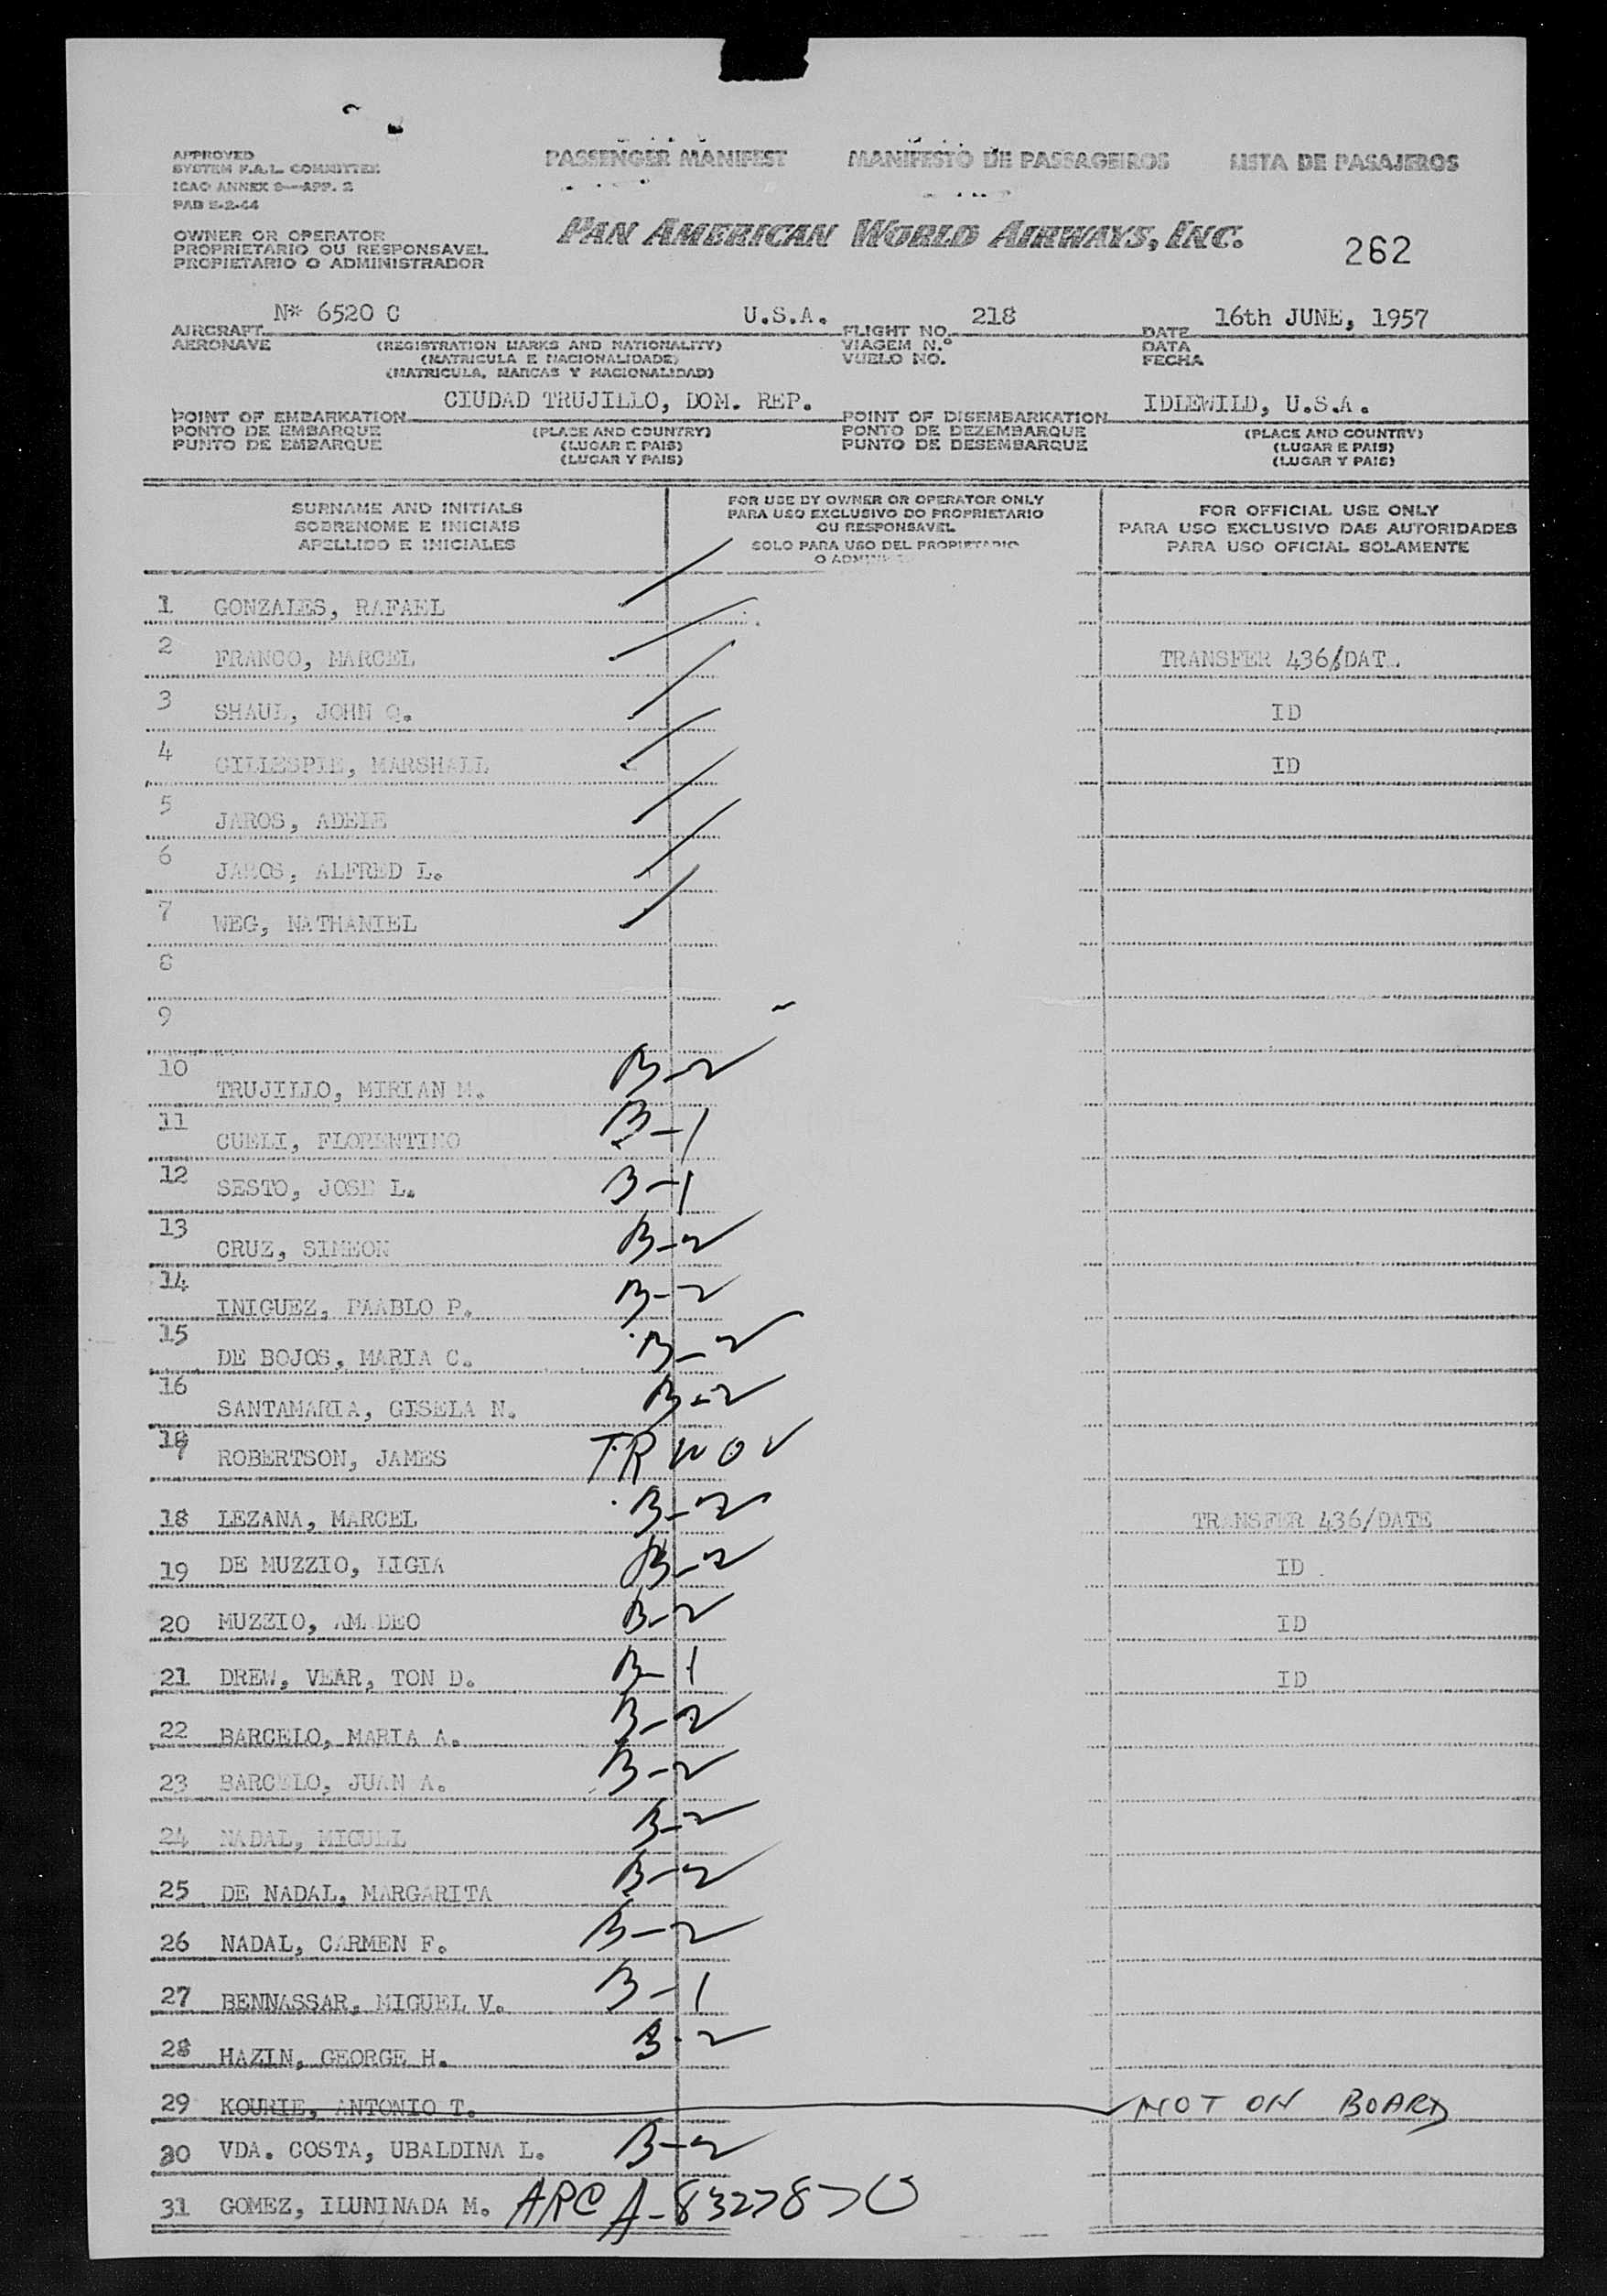 APPROVED
SYSTEM F.A.L. COMMITTEE
ICAO ANNEX 9—APP. 2
PAD 5-2-44
PASSENGER MANIFEST MANIFESTO DE PASSAGEIROS LISTA DE PASAJEROS
OWNER OR OPERATOR
PROPRIETARIO OU RESPONSAVEL
PROPIETARIO O ADMINISTRADOR
PAN AMERICAN WORLD AIRWAYS, INC.
262
AIRCRAFT N* 6520 C U.S.A. FLIGHT NO. 218 DATE 16th JUNE, 1957
AERONAVE (REGISTRATION MARKS AND NATIONALITY) VIAGEM N.º DATA
(MATRICULA E NACIONALIDADE) VUELO NO. FECHA
(MATRICULA, MARCAS Y NACIONALIDAD)
POINT OF EMBARKATION CIUDAD TRUJILLO, DOM. REP. POINT OF DISEMBARKATION IDLEWILD, U.S.A.
PONTO DE EMBARQUE (PLACE AND COUNTRY) PONTO DE DEZEMBARQUE (PLACE AND COUNTRY)
PUNTO DE EMBARQUE (LUGAR E PAIS) PUNTO DE DESEMBARQUE (LUGAR E PAIS)
(LUGAR Y PAIS) (LUGAR Y PAIS)
SURNAME AND INITIALS
SOBRENOME E INICIAIS
APELLIDO E INICIALES
FOR USE BY OWNER OR OPERATOR ONLY
PARA USO EXCLUSIVO DO PROPRIETARIO
OU RESPONSAVEL
SOLO PARA USO DEL PROPIETARIO
O
FOR OFFICIAL USE ONLY
PARA USO EXCLUSIVO DAS AUTORIDADES
PARA USO OFICIAL SOLAMENTE
1 GONZALES, RAFAEL
2 FRANCO, MARCEL TRANSFER 436/DAT
3 SHAUL, JOHN Q. ID
4 GILLESPIE, MARSHALL ID
5 JAROS, ADELE
6 JAROS, ALFRED L.
7 WEG, NATHANIEL
8
9
10 TRUJILLO, MIRIAN M. B-2
11 CUELI, FLORENTINO B-1
12 SESTO, JOSE L. B-1
13 CRUZ, SIMEON B-2
14 INIGUEZ, PAABLO P. B-2
15 DE BOJOS, MARIA C. B-2
16 SANTAMARIA, GISELA N. B-2
17 ROBERTSON, JAMES TRWOV
18 LEZANA, MARCEL B-2 TRANSFER 436/DATE
19 DE MUZZIO, LIGIA B-2 ID
20 MUZZIO, AMADEO B-2 ID
21 DREW, VEAR, TON D. B-1 ID
22 BARCELO, MARIA A. B-2
23 BARCELO, JUAN A. B-2
24 NADAL, MIGUEL B-2
25 DE NADAL, MARGARITA B-2
26 NADAL, CARMEN F. B-2
27 BENNASSAR, MIGUEL V. B-1
28 HAZIN, GEORGE H. B-2
29 KOURIE, ANTONIO T. NOT ON BOARD
30 VDA. COSTA, UBALDINA L. B-2
31 GOMEZ, ILUNINADA M. ARC A-8327870